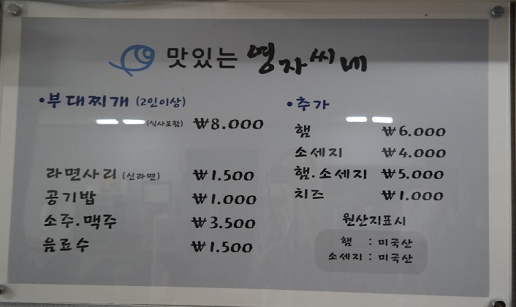 맛있는 영자씨네
•부대찌개 (2인이상)
(식사포함) ₩8.000
라면사리 (신라면) ₩1.500
공기밥 ₩1.000
소주.맥주 ₩3.500
음료수 ₩1.500
•추가
햄 ₩6.000
소세지 ₩4.000
햄.소세지 ₩5.000
치즈 ₩1.000
원산지표시
햄 : 미국산
소세지 : 미국산